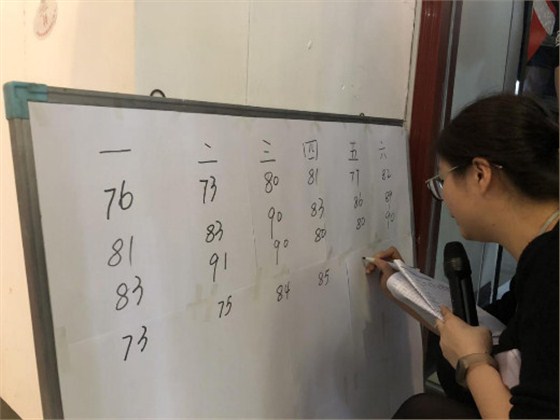 一 二 三 四 五 六
76 73 80 81 77 82
81 83 90 83 86
83 91 90 80 80 90
73 75 84 85